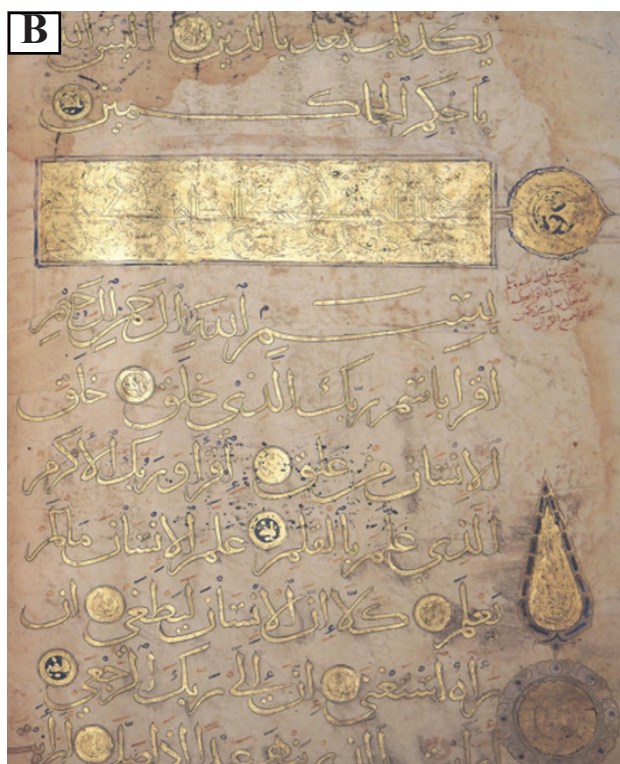 B
يكذبك بعد بالدين اليس الله
بأحكم الحاكمين
بسم الله الرحمن الرحيم
اقرا باسم ربك الذي خلق خلق
الانسان من علق اقرا وربك الاكرم
الذي علم بالقلم علم الانسان مالم
يعلم كلا ان الانسان ليطغى ان
رأه استغنى إن إلى ربك الرجعى
ارايت الذي ينهى عبدا اذا صلى ارايت